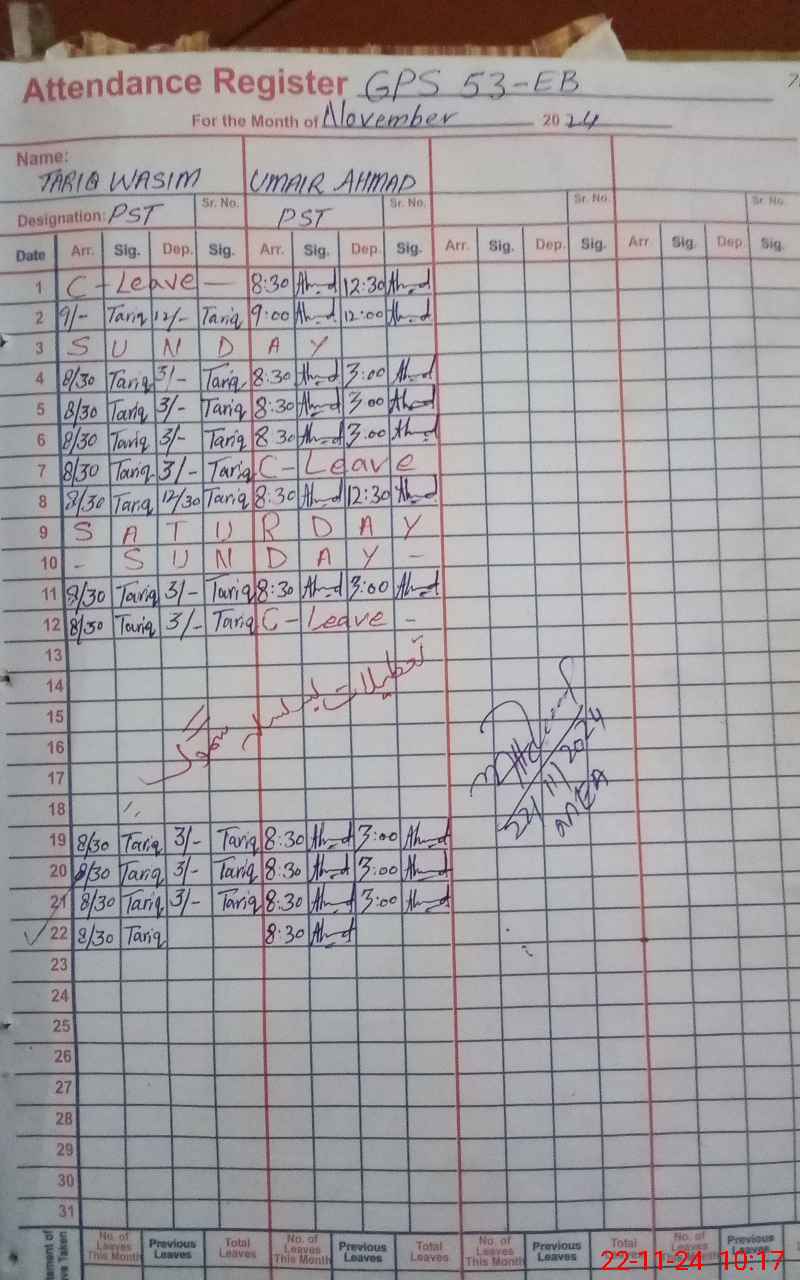 Attendance Register GPS 53-EB
For the Month of November 2024
Name: TARIQ WASIM UMAIR AHMAD
Designation: PST Sr. No. PST Sr. No. Sr. No. Sr. No.
Date Arr. Sig. Dep. Sig. Arr. Sig. Dep. Sig. Arr. Sig. Dep. Sig. Arr Sig. Dep. Sig.
1 C-Leave — 8:30 Ahmd 12:30 Ahmd
2 9/- Tariq 12/- Tariq 9:00 Ahmd 12:00 Ahmd
3 S U N D A Y
4 8/30 Tariq 3/- Tariq 8:30 Ahmd 3:00 Ahmd
5 8/30 Tariq 3/- Tariq 8:30 Ahmd 3:00 Ahmd
6 8/30 Tariq 3/- Tariq 8:30 Ahmd 3:00 Ahmd
7 8/30 Tariq 3/- Tariq C-Leave
8 8/30 Tariq 12/30 Tariq 8:30 Ahmd 12:30 Ahmd
9 S A T U R D A Y
10 - S U N D A Y -
11 8/30 Tariq 3/- Tariq 8:30 Ahmd 3:00 Ahmd
12 8/30 Tariq 3/- Tariq C-Leave -
13
14
تعطیلات بسلسلہ سموگ
15
16
17
18
22/11/2024
MEA
19 8/30 Tariq 3/- Tariq 8:30 Ahmd 3:00 Ahmd
20 8/30 Tariq 3/- Tariq 8:30 Ahmd 3:00 Ahmd
21 8/30 Tariq 3/- Tariq 8:30 Ahmd 3:00 Ahmd
22 8/30 Tariq 8:30 Ahmd
23
24
25
26
27
28
29
30
31
No. of Leaves This Month Previous Leaves Total Leaves No. of Leaves This Month Previous Leaves Total Leaves No. of Leaves This Month Previous Leaves Total No. of Leaves Previous
22-11-24 10:17